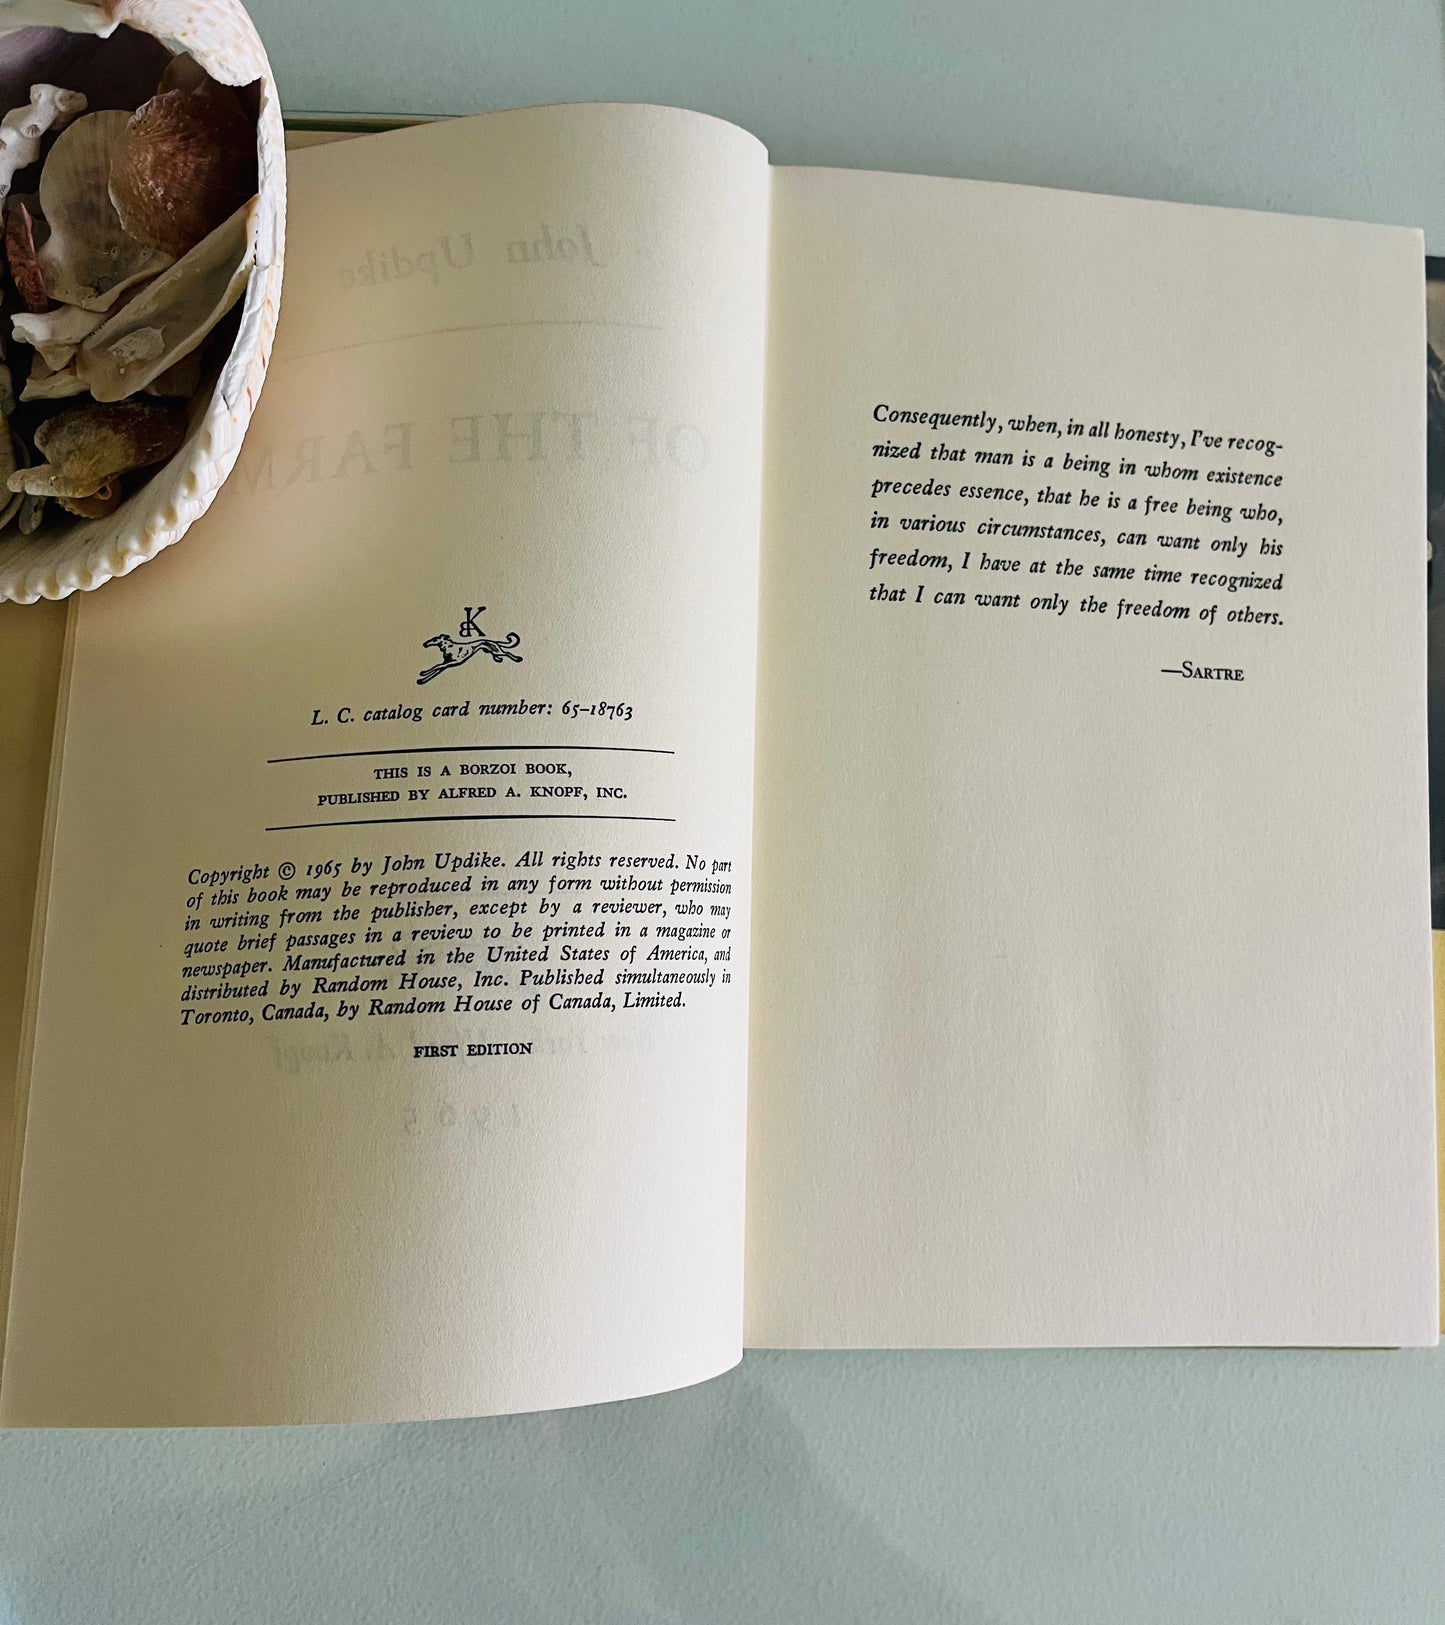 BK
L. C. catalog card number: 65–18763
THIS IS A BORZOI BOOK,
PUBLISHED BY ALFRED A. KNOPF, INC.
Copyright © 1965 by John Updike. All rights reserved. No part
of this book may be reproduced in any form without permission
in writing from the publisher, except by a reviewer, who may
quote brief passages in a review to be printed in a magazine or
newspaper. Manufactured in the United States of America, and
distributed by Random House, Inc. Published simultaneously in
Toronto, Canada, by Random House of Canada, Limited.
FIRST EDITION
Consequently, when, in all honesty, I've recog-
nized that man is a being in whom existence
precedes essence, that he is a free being who,
in various circumstances, can want only his
freedom, I have at the same time recognized
that I can want only the freedom of others.
—SARTRE